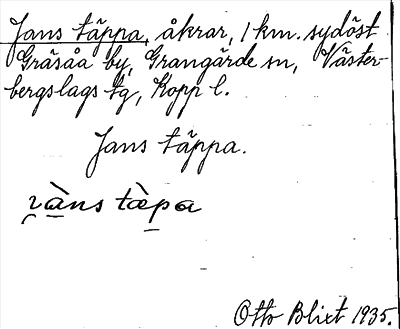 Jans täppa, åkrar, 1 km. sydöst
Gräsåa by, Grangärde sn, Väster-
bergslags tg, Kopp l.
Jans täppa.
Otto Blixt 1935.